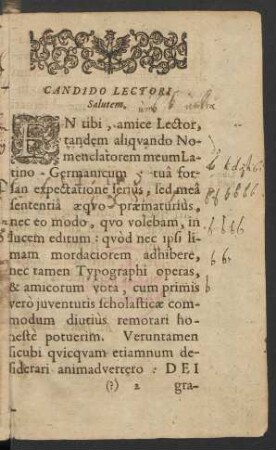 CANDIDO LECTORI
Salutem.
EN tibi, amice Lector,
tandem aliqvando No-
menclatorem meum La-
tino-Germanicum, tuâ for-
san expectatione seriùs, sed meâ
sententiâ æqvo præmaturiùs,
nec eo modo, qvo volebam, in
lucem editum: qvòd nec ipsi li-
mam mordaciorem adhibere,
nec tamen Typographi operas,
& amicorum vota, cum primis
verò juventutis scholasticæ com-
modum diutiùs remorari ho-
nestè potuerim. Veruntamen
sicubi qvicqvam etiamnum de-
siderari animadvertero: DEI
(?) 2 gra-